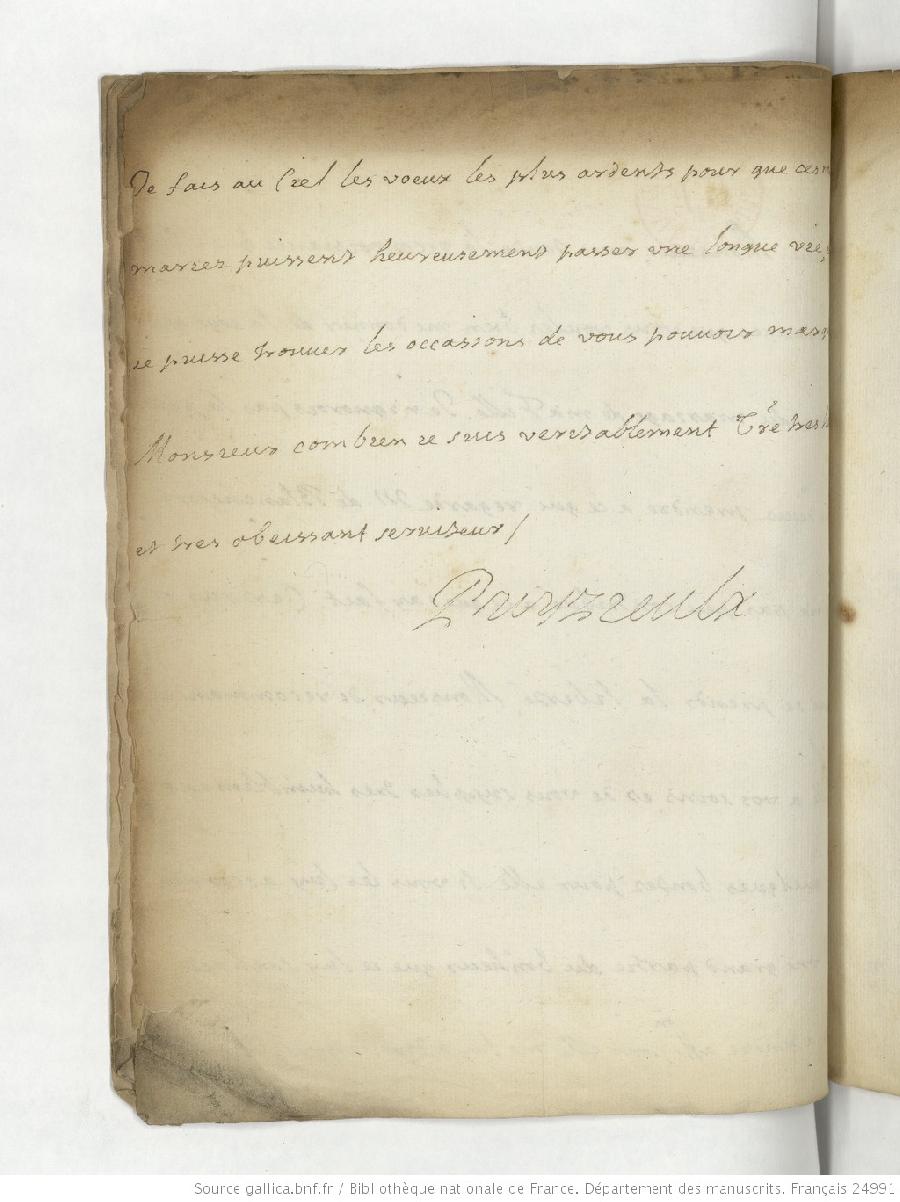 Je fais au Ciel les voeux les plus ardents pour que ces
mariez puissent heureusement passer une longue vie,
ie puisse trouuer les occasions de vous pouuoir
Monsieur combien ie suis veritablement Tré tres
et tres obeissant seruiteur /
Source gallica.bnf.fr / Bibliothèque nationale de France. Département des manuscrits. Français 24991